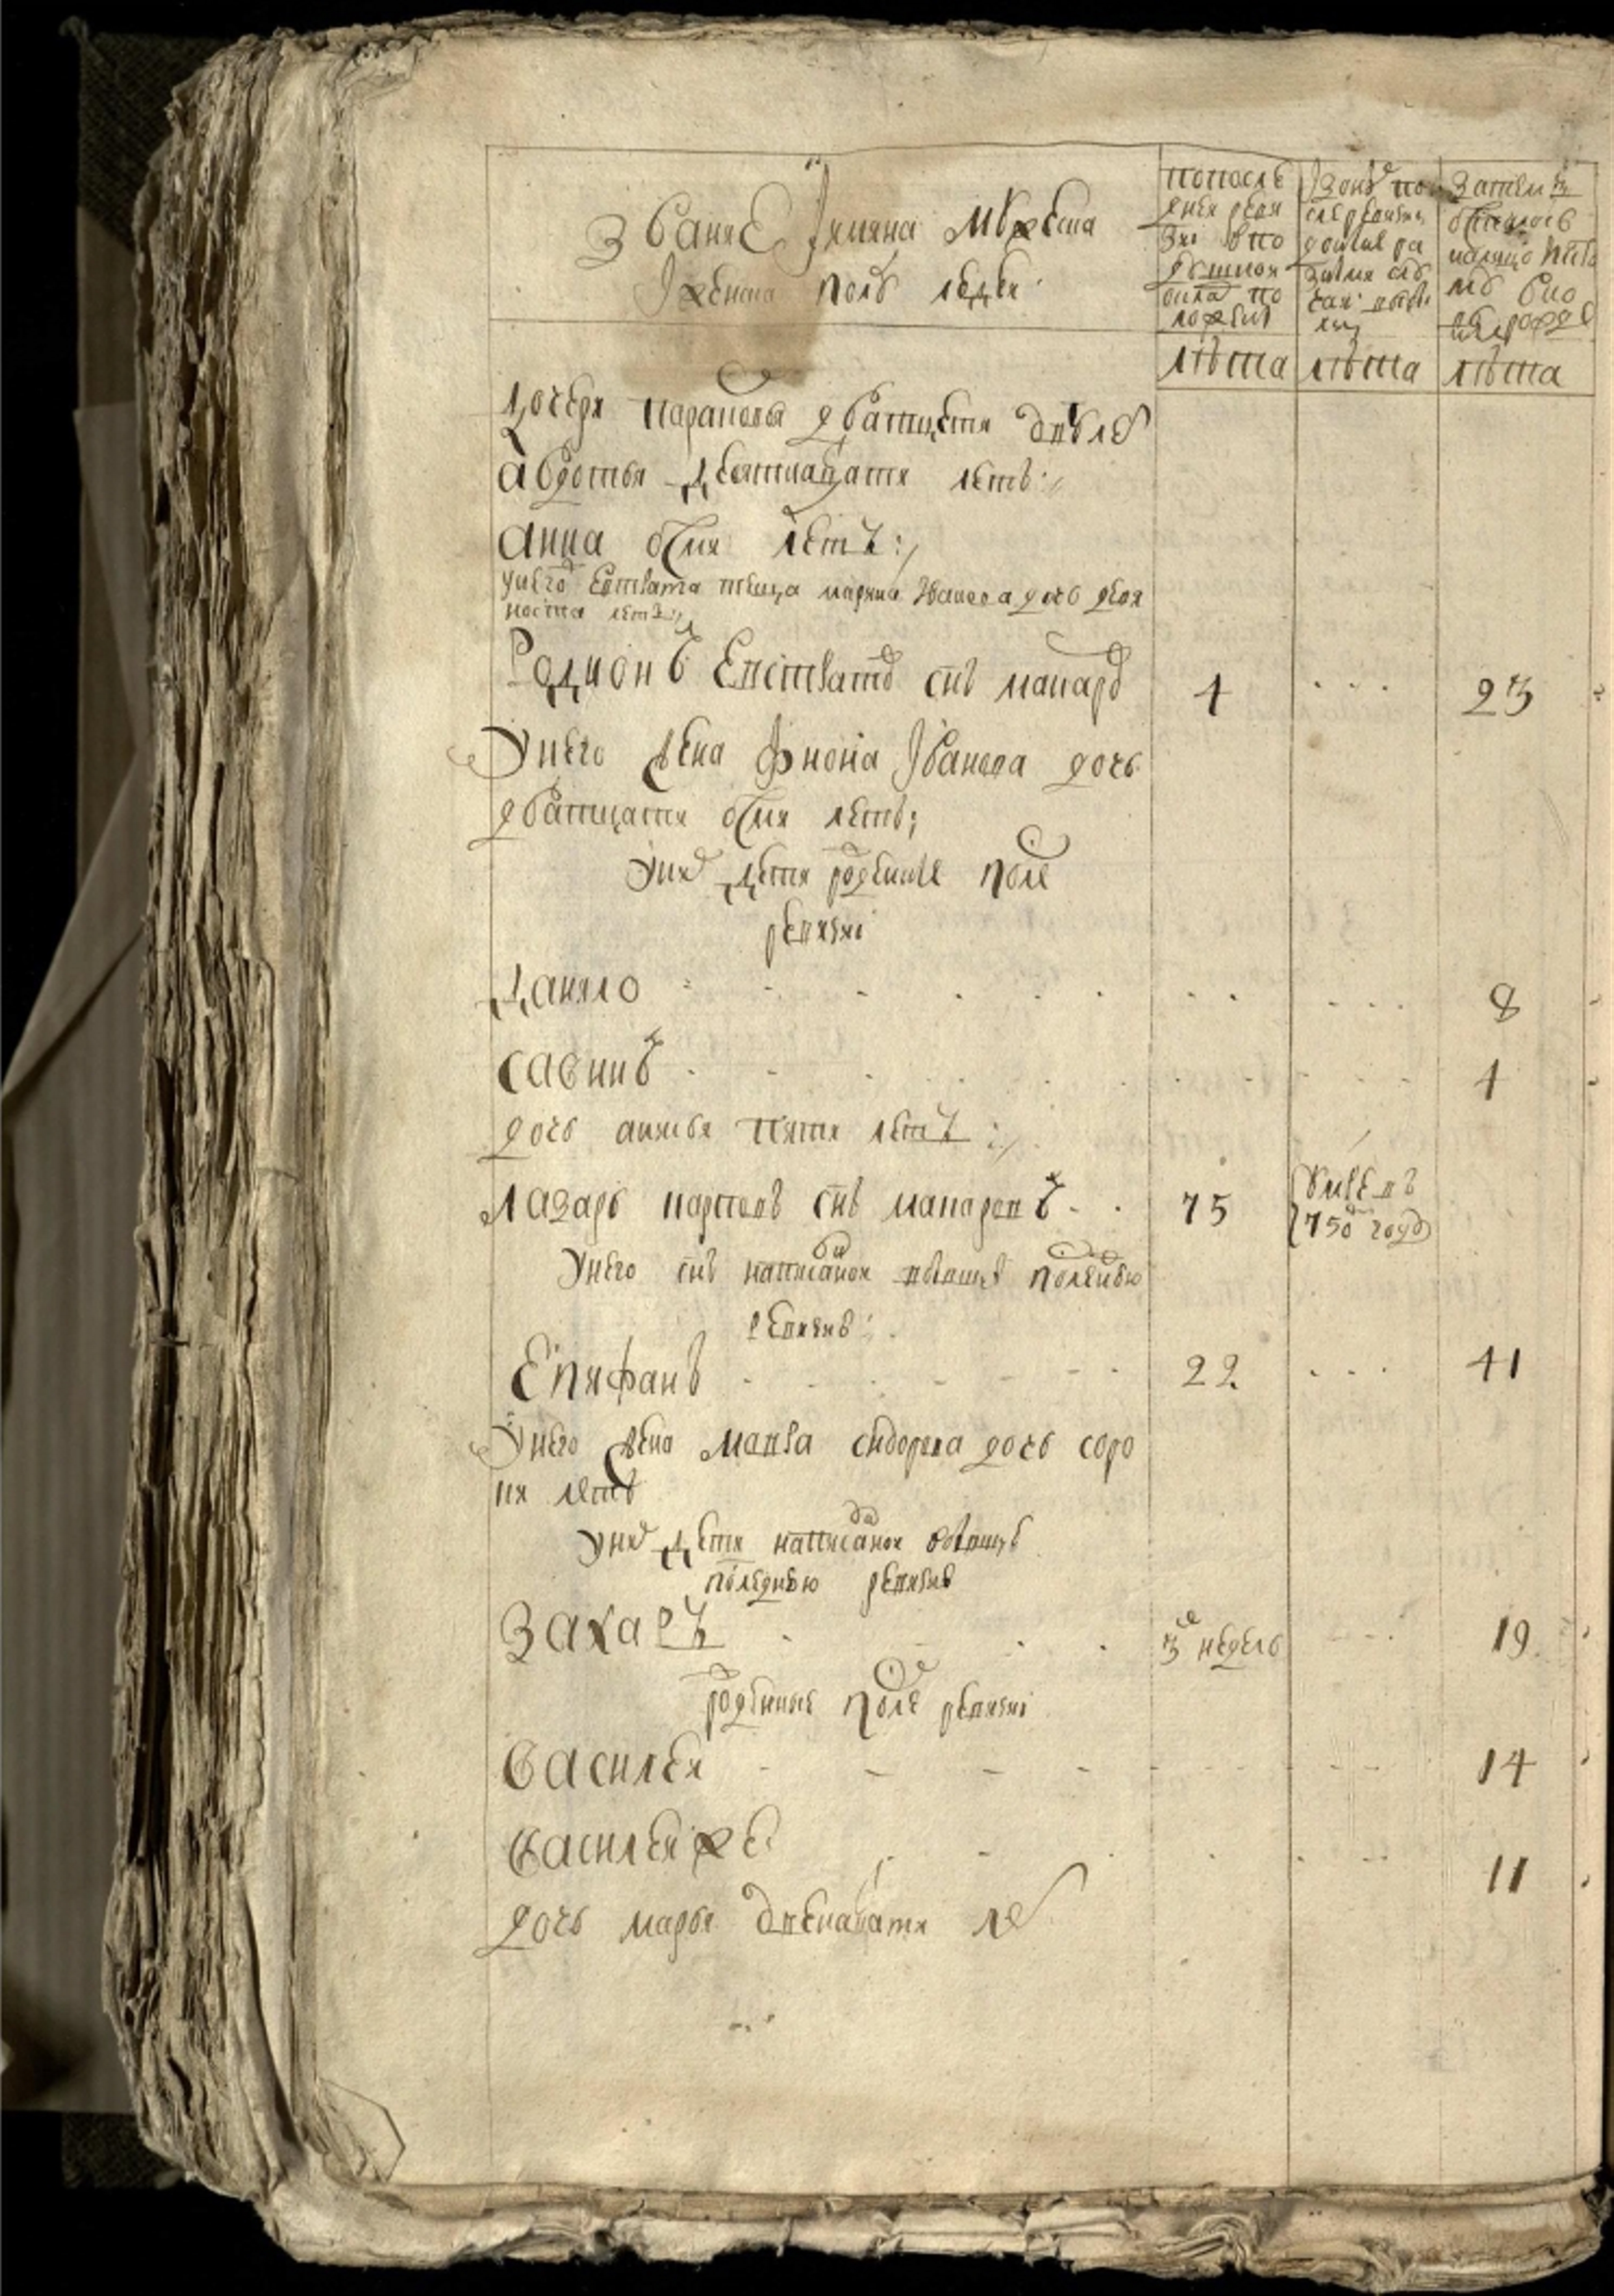 Звание Імяна мужеска
Іженска полу людеи
попосле
днеи реви
зиі впо
душнои
окладъ по
ложены
Ізоныхъ по
слеревизиі
Затемъ
лѣта
лѣта
лѣта
Дочери парасковья дватцети двухъ
Авдотья девятнацати летъ
Анна осми летъ
унего Евстрата теща марина Иванова дочь девя
носта летъ
Родионъ Евстратовъ снъ макаровъ 4 23
Унего жена Фиона Іванова дочь
дватцати осми летъ
Унихъ дети рожденные после
ревизиі
Данило 8
Савинъ 4
дочь анисья пяти летъ
Лазарь карповъ снъ макаровъ 75
умре въ
750м году
Унего снъ написанои вбывшую последнюю
ревизию
Епифанъ 22 41
Унего жена Мавра сидорова дочь соро
ки летъ
Унихъ дети написанои вбывшую
последнюю ревизию
Захаръ 3х недель 19
рожденные после ревизиі
Василеи 14
Василеи же 11
дочь марья двенацати летъ